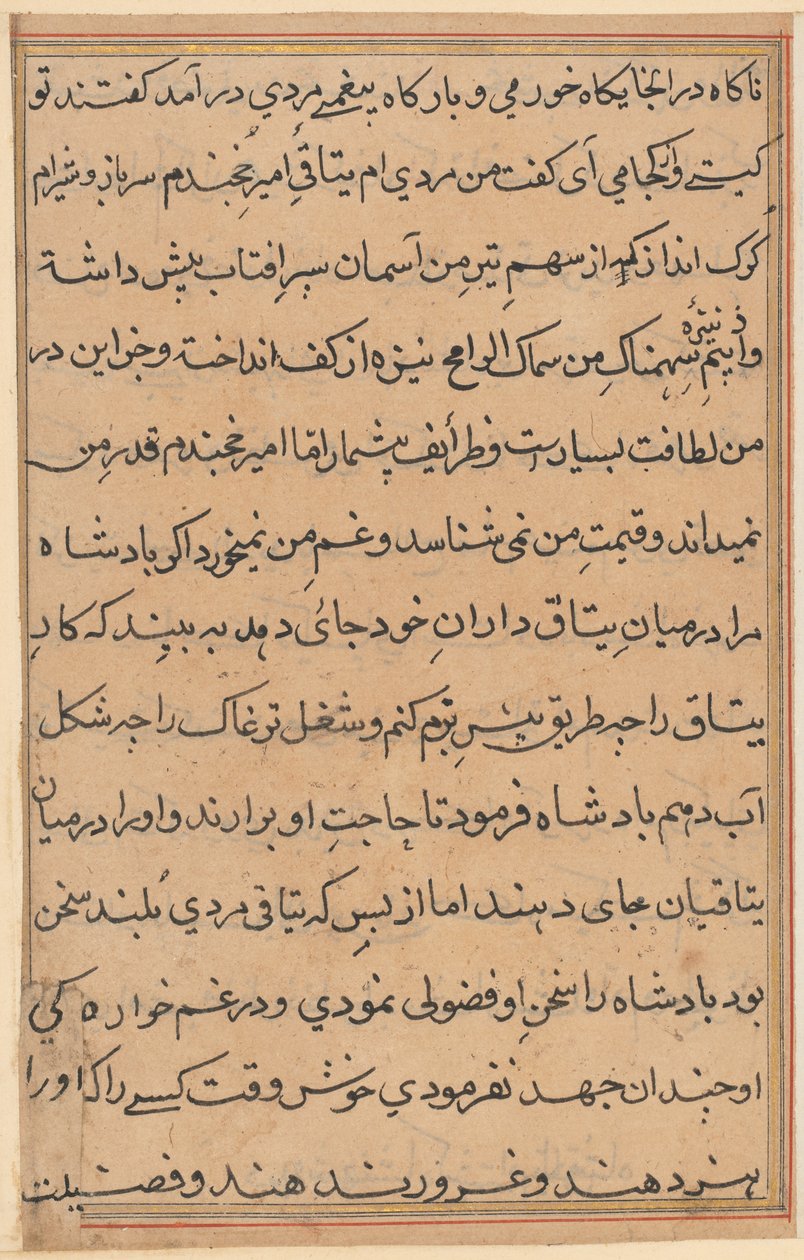 ناکاه در انجایکاه خورمي و بارکاه بیغمے مردي درآمد کفتند تو
کیستے و از کجامي آی کفت من مردي ام یتاقيِ امیرِ خُجندم سرباز و شیرام
کُوک انداز از سهمِ تیرِ من آسمان سپرِ افتاب پیش داشة
و از بیمِ نیزۀ سِهمناکِ من سماک الرامح نیزه از کف انداختة و جز این در
من لطافت بسیارست و طرأیف بیشمار امّا امیر خجندم قدرِ من
نمیداند و قیمتِ من نمی شناسد و غمِ من نمیخورد اکر بادشاه
مرا درمیانِ یتاق دارانِ خود جائی دهد به بیند که کارِ
یتاق را چه طریق پیش برم کنم و شغل ترغاک را چه شکل
آب دهم بادشاه فرمود تا حاجتِ او برارند و اورا درمیان
یتاقیان جای دهند اما از بسِ که یتاقی مردي بُلند سخن
بود بادشاه را سخنِ او فضولی نمودي و در غم خواره کي
او چندان جهد نفرمودي خوش وقت کسے را که اورا
هنر دهند و غرور ندهند و فضیلت